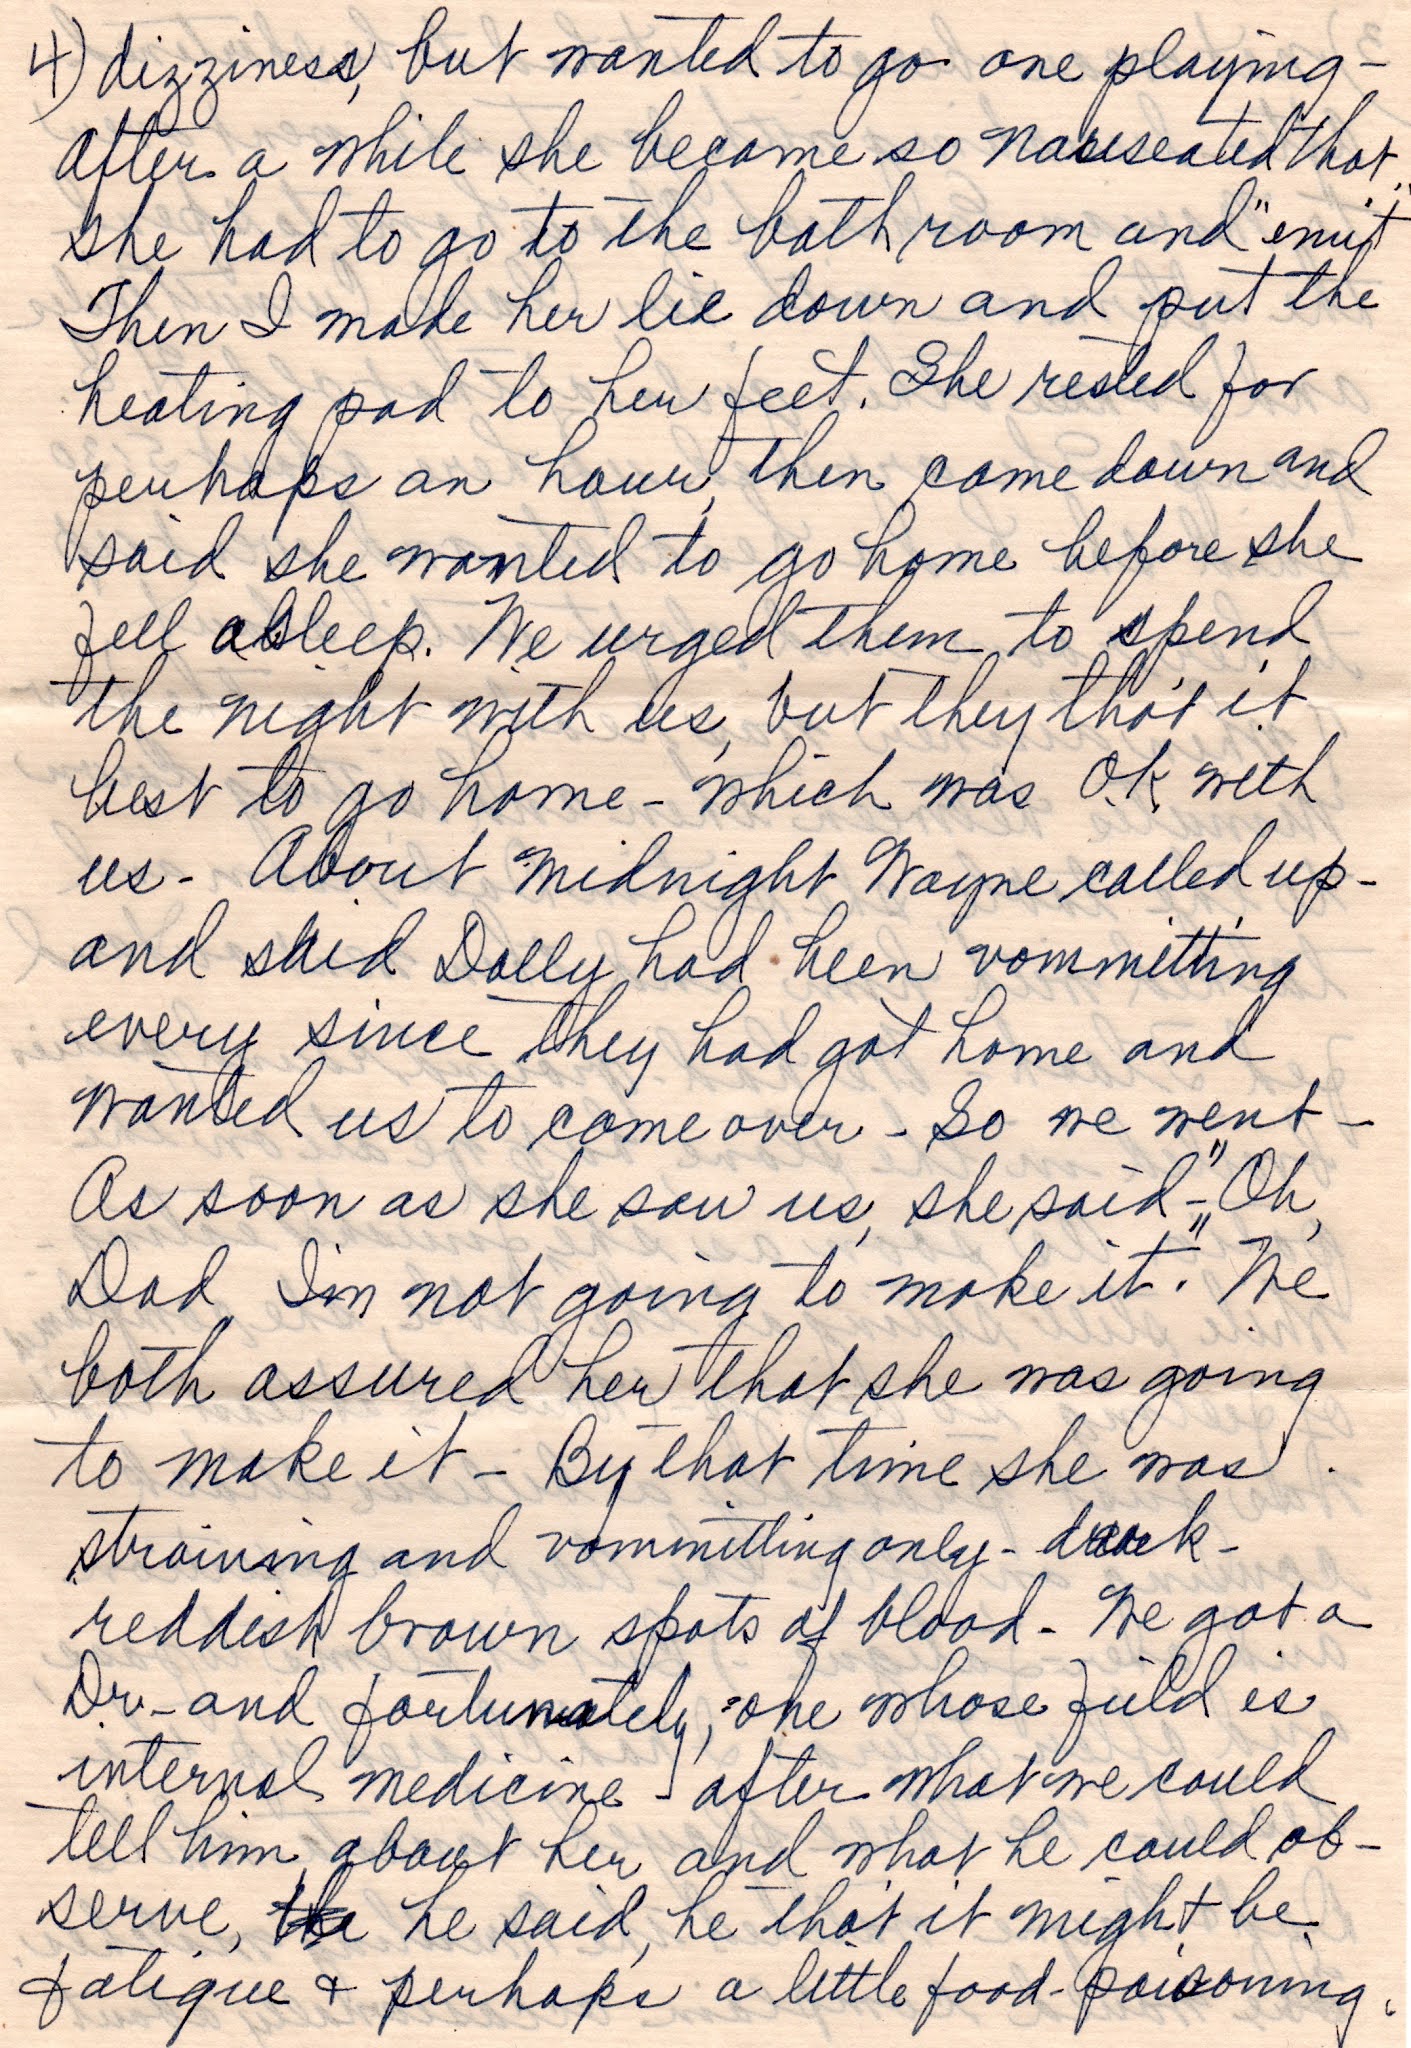 4) dizziness, but wanted to go one playing -
after a while she became so nauseated that
she had to go to the bathroom and "emit"
Then I made her lie down and put the
heating pad to her feet. She rested for
perhaps an hour, then came down and
said she wanted to go home before she
fell asleep. We urged them to spend
the night with us, but they tho't it
best to go home - which was O.K. with
us - About midnight Wayne called up -
and said Dolly had been vommitting
every since they had got home and
wanted us to come over - So we went -
As soon as she saw us, she said - "Oh,
Dad, I'm not going to make it." We
both assured her that she was going
to make it - By that time she was
straining and vommitting only - dark -
reddish brown spots of blood - We got a
Dr. - and fortunately, one whose field is
internal medicine - after what we could
tell him about her and what he could ob-
serve, he said, he tho't it might be
fatigue & perhaps a little food-poisoning.